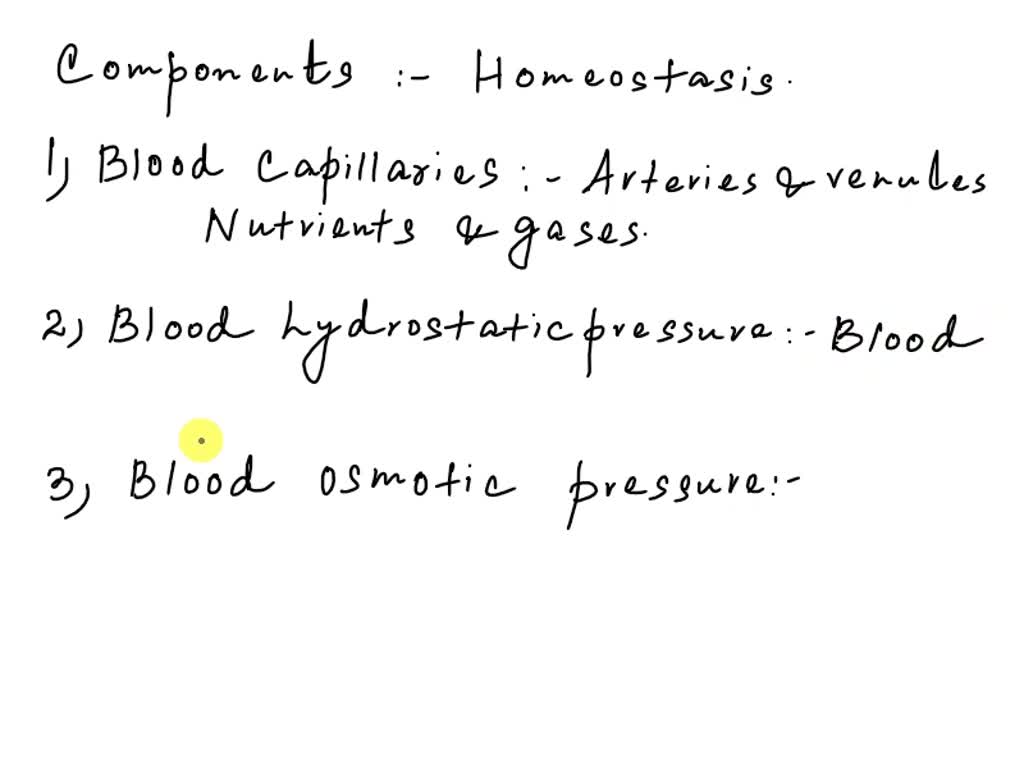 Components :- Homeostasis.
1, Blood Capillaries :- Arteries & venules
Nutrients & gases.
2, Blood hydrostatic pressure :- Blood
3, Blood osmotic pressure :-